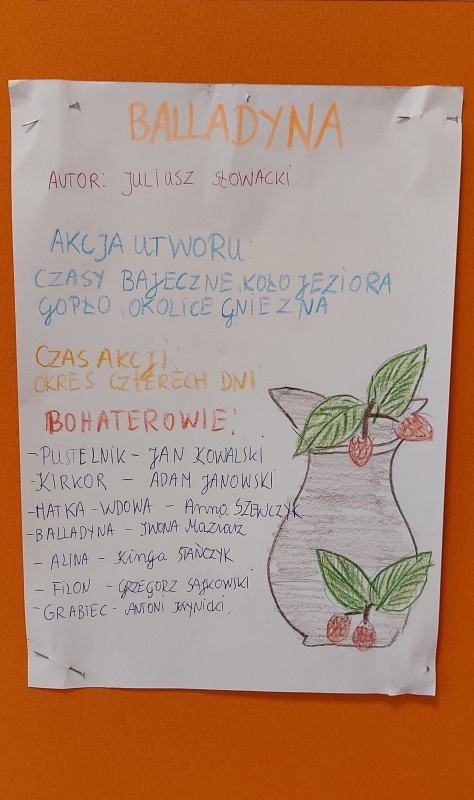 BALLADYNA
AUTOR: JULIUSZ SŁOWACKI
AKCJA UTWORU:
CZASY BAJECZNE, KOŁO JEZIORA
GOPŁO, OKOLICE GNIEZNA
CZAS AKCJI:
OKRES CZTERECH DNI
BOHATEROWIE:
- PUSTELNIK - JAN KOWALSKI
- KIRKOR - ADAM JANOWSKI
- MATKA - WDOWA - Anna SZEWCZYK
- BALLADYNA - IWONA Maziarz
- ALINA - Kinga STAŃCZYK
- FILON - GRZEGORZ SAJKOWSKI
- GRABIEC - ANTONI